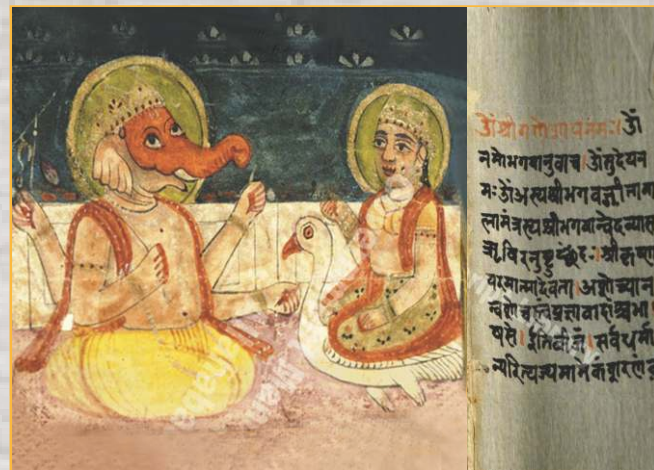 ॐश्रीगणेशायनमः। ॐ
नमोभगवानुवाच। ॐ
मःॐअस्यश्रीभगवद्गीतामा
लामंत्रस्यश्रीभगवान्वेदव्यास
ऋषिरनुष्टुप्छंदः। श्रीकृष्ण
परमात्मादेवता। अशोच्यान
न्वशोचस्त्वंप्रज्ञावादांश्चभा
षसे। इतिबीजं। सर्वधर्मा
न्परित्यज्यमामेकंशरणंव्र